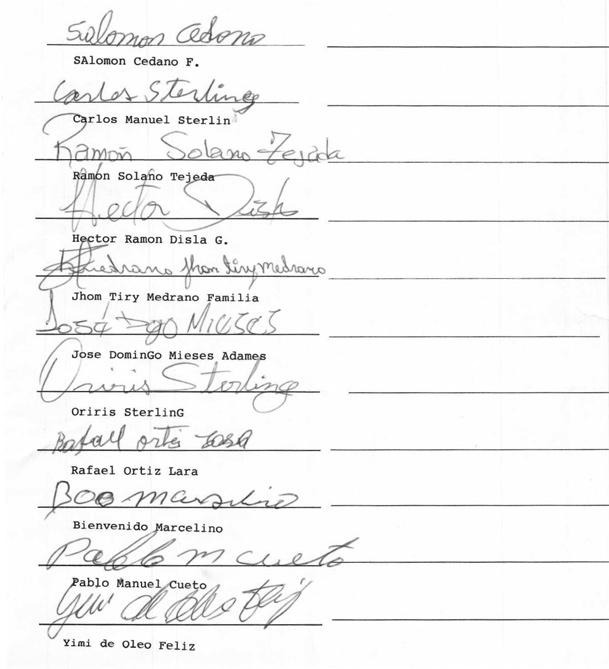 Salomon Cedano
SAlomon Cedano F.
Carlos Sterling
Carlos Manuel Sterlin
Ramón Solano Tejada
Ramon Solano Tejeda
Hector Disla
Hector Ramon Disla G.
Medrano Jhon tiry medrano
Jhom Tiry Medrano Familia
José Dgo MIESES
Jose DominGo Mieses Adames
Oriris Sterling
Oriris SterlinG
Rafael ortiz
Rafael Ortiz Lara
Bienvenido Marcelino
Pablo m cueto
Pablo Manuel Cueto
Yimi de
Yimi de Oleo Feliz